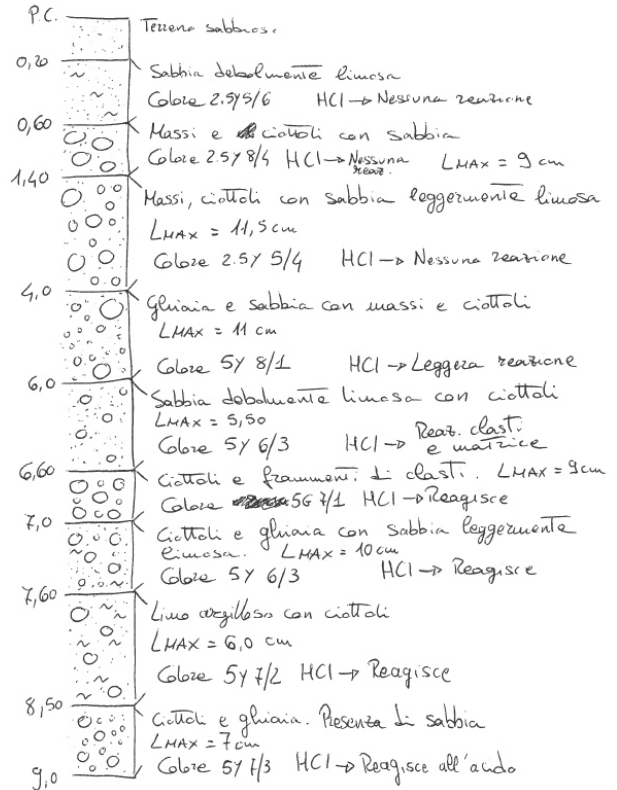 P.C.
Terreno sabbioso.
0,20
Sabbia debolmente limosa
Colore 2.5Y5/6 HCl → Nessuna reazione
0,60
Massi e ciottoli con sabbia
Colore 2.5Y 8/4 HCl → Nessuna reaz. LMAX = 9 cm
1,40
Massi, ciottoli con sabbia leggermente limosa
LMAX = 11,5 cm
Colore 2.5Y 5/4 HCl → Nessuna reazione
4,0
Ghiaia e sabbia con massi e ciottoli
LMAX = 11 cm
Colore 5Y 8/1 HCl → Leggera reazione
6,0
Sabbia debolmente limosa con ciottoli
LMAX = 5,50
Colore 5Y 6/3 HCl → Reaz. clasti e matrice
6,60
Ciottoli e frammenti di clasti. LMAX = 9cm
Colore 5G 7/1 HCl → Reagisce
7,0
Ciottoli e ghiaia con sabbia leggermente
limosa. LMAX = 10 cm
Colore 5Y 6/3 HCl → Reagisce
7,60
Limo argilloso con ciottoli
LMAX = 6,0 cm
Colore 5Y 7/2 HCl → Reagisce
8,50
Ciottoli e ghiaia. Presenza di sabbia
LMAX = 7 cm
Colore 5Y 7/3 HCl → Reagisce all'acido
9,0